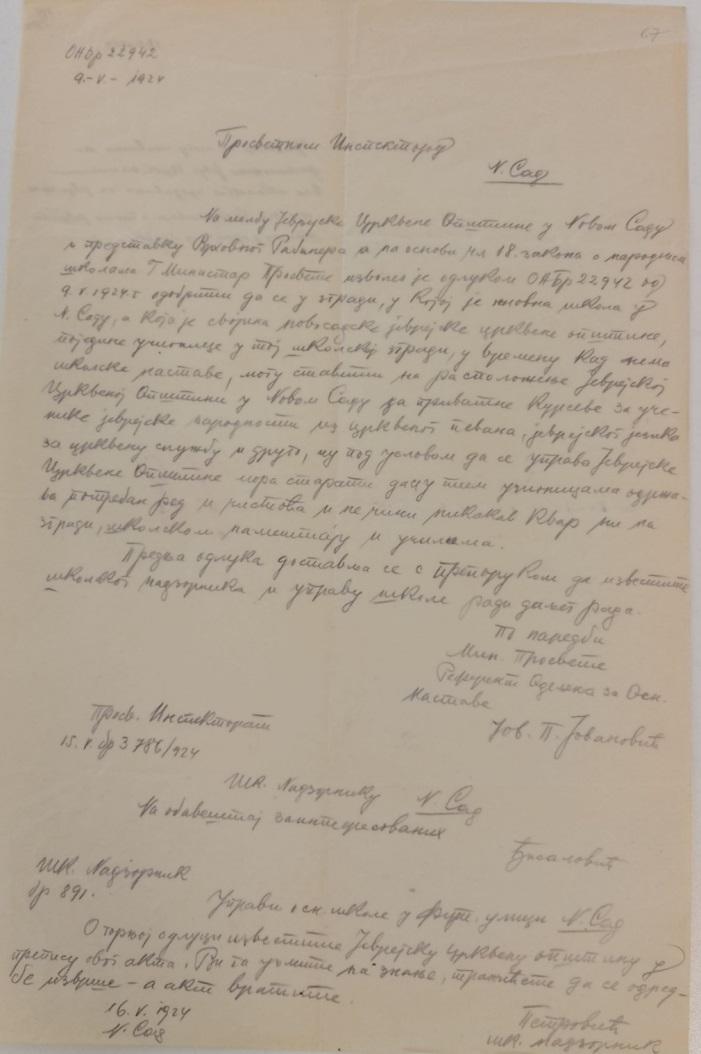 67
ОНбр 22942
9.-V.- 1924
Просветном Инспектору
N. Сад
На молбу Јеврејске Црквене Општине у Новом Саду
и представку Духовног Рабинера а на основи чл 18. закона о народним
школама Г Министар Просвете изволео је одлуком ОНБр 22942 од
9.V.1924.г одобрити да се у згради, у којој је основна школа у
N. Саду, а која је својина новосадске јеврејске црквене општине,
поједине учионице у тој школској згради, у времену кад нема
школске наставе, могу ставити на расположење Јеврејској
Црквеној Општини у Новом Саду за приватне курсеве за уче-
нике јеврејске народности из црквеног певања, јеврејског језика
за црквену службу и друго, ну под условом да се управа Јеврејске
Црквене Општине мора старати да у тим учионицама одржа-
ва потребан ред и чистоћа и не чини никакав квар ни на
згради, школском намештају и училима.
Предња одлука доставља се с препоруком да известите
школског надзорника и управу школе ради даљег рада.
По наредби
Мин. Просвете
Референт Одељка за Осн.
Наставе
Јов. П. Јовановић
Просв. Инспекторат
15. V. бр 3786/924
Шк. Надзорнику N. Сад
На обавештај заинтересованих
Шк. Надзорник
бр 891.
Управи осн. школе у Фут. улици N. Сад
О горњој одлуци известите Јеврејску црквену општину у
препису овог акта. Ви га узмите на знање, тражићете да се одред-
бе изврше – а акт вратите.
16. V. 1924
N. Сад
Петровић
шк. надзорник